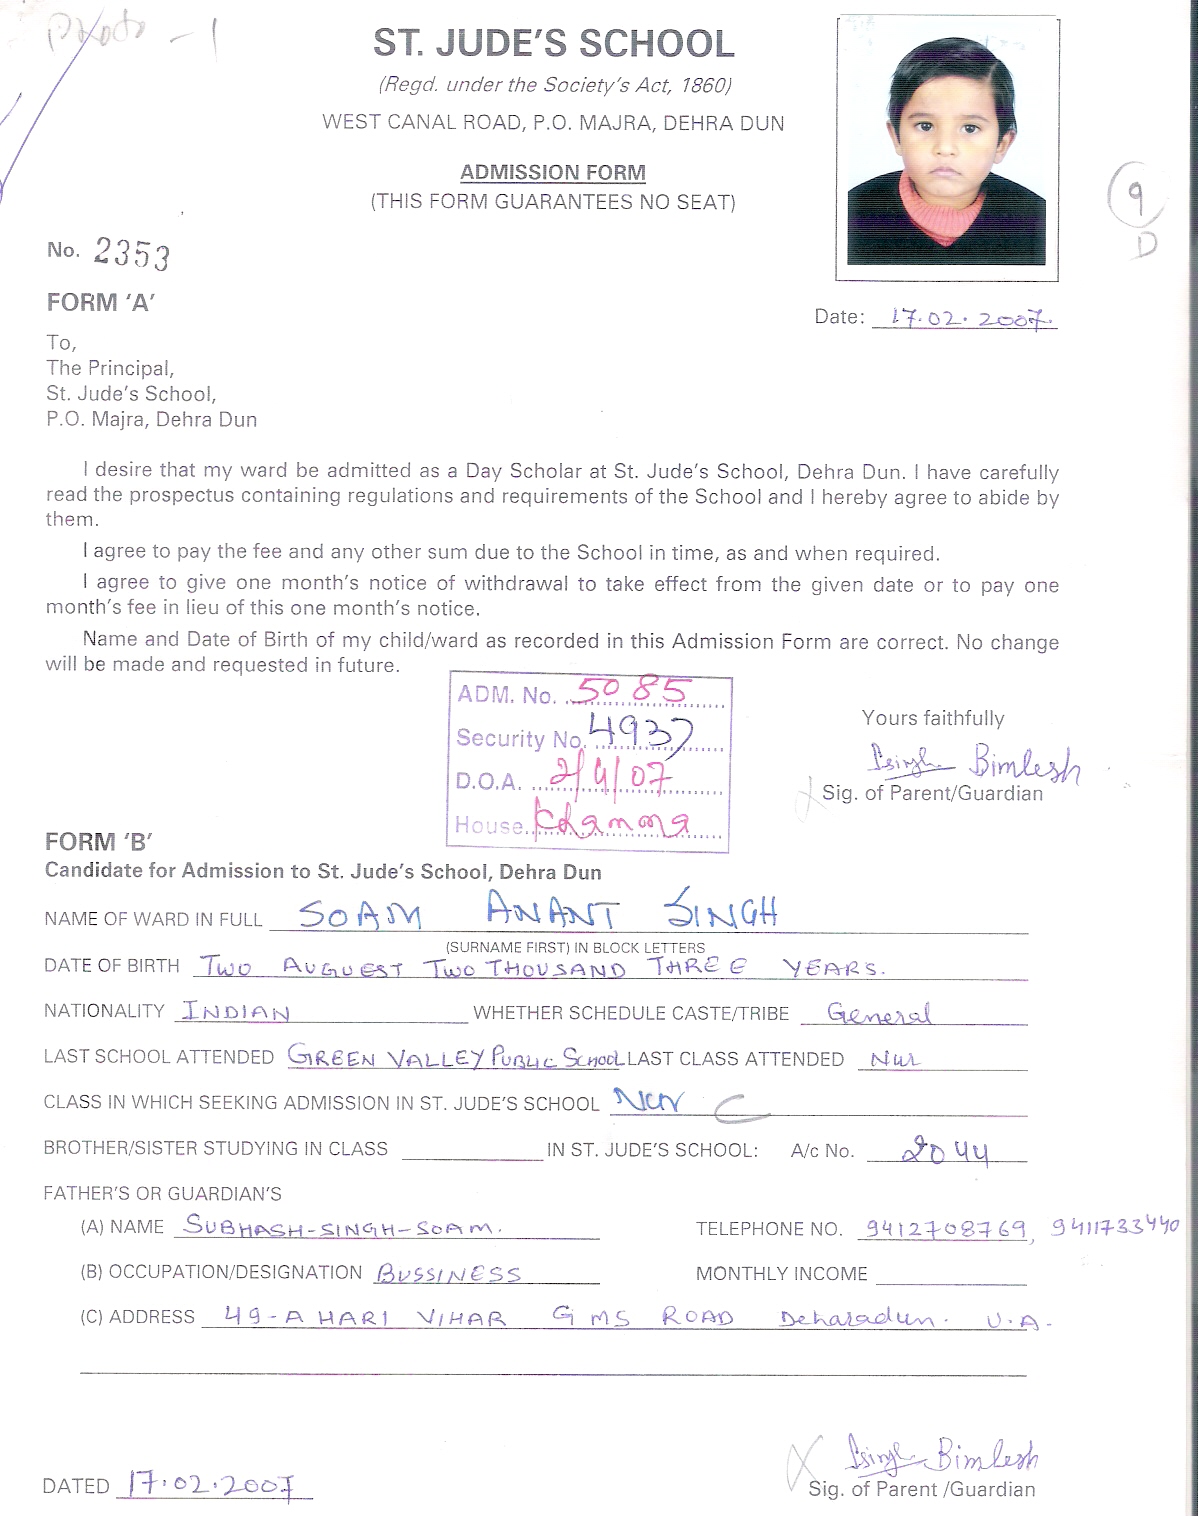 Photo - 1
ST. JUDE'S SCHOOL
(Regd. under the Society's Act, 1860)
WEST CANAL ROAD, P.O. MAJRA, DEHRA DUN
ADMISSION FORM
(THIS FORM GUARANTEES NO SEAT)
9
D
No. 2353
FORM 'A'
Date: 17.02.2007.
To,
The Principal,
St. Jude's School,
P.O. Majra, Dehra Dun
I desire that my ward be admitted as a Day Scholar at St. Jude's School, Dehra Dun. I have carefully
read the prospectus containing regulations and requirements of the School and I hereby agree to abide by
them.
I agree to pay the fee and any other sum due to the School in time, as and when required.
I agree to give one month's notice of withdrawal to take effect from the given date or to pay one
month's fee in lieu of this one month's notice.
Name and Date of Birth of my child/ward as recorded in this Admission Form are correct. No change
will be made and requested in future.
ADM. No. 5085
Security No. 4937
D.O.A. 2/4/07
House
Yours faithfully
Bimlesh
Sig. of Parent/Guardian
FORM 'B'
Candidate for Admission to St. Jude's School, Dehra Dun
NAME OF WARD IN FULL SOAM ANANT SINGH
(SURNAME FIRST) IN BLOCK LETTERS
DATE OF BIRTH TWO AUGUEST TWO THOUSAND THREE YEARS.
NATIONALITY INDIAN WHETHER SCHEDULE CASTE/TRIBE General
LAST SCHOOL ATTENDED GREEN VALLEY PUBLIC SCHOOL LAST CLASS ATTENDED Nur
CLASS IN WHICH SEEKING ADMISSION IN ST. JUDE'S SCHOOL Nur C
BROTHER/SISTER STUDYING IN CLASS IN ST. JUDE'S SCHOOL: A/c No. 2044
FATHER'S OR GUARDIAN'S
(A) NAME SUBHASH-SINGH-SOAM. TELEPHONE NO. 9412708769, 9411733440
(B) OCCUPATION/DESIGNATION BUSSINESS MONTHLY INCOME
(C) ADDRESS 49-A HARI VIHAR GMS ROAD Deharadun. U.A.
Bimlesh
DATED 17.02.2007
Sig. of Parent /Guardian